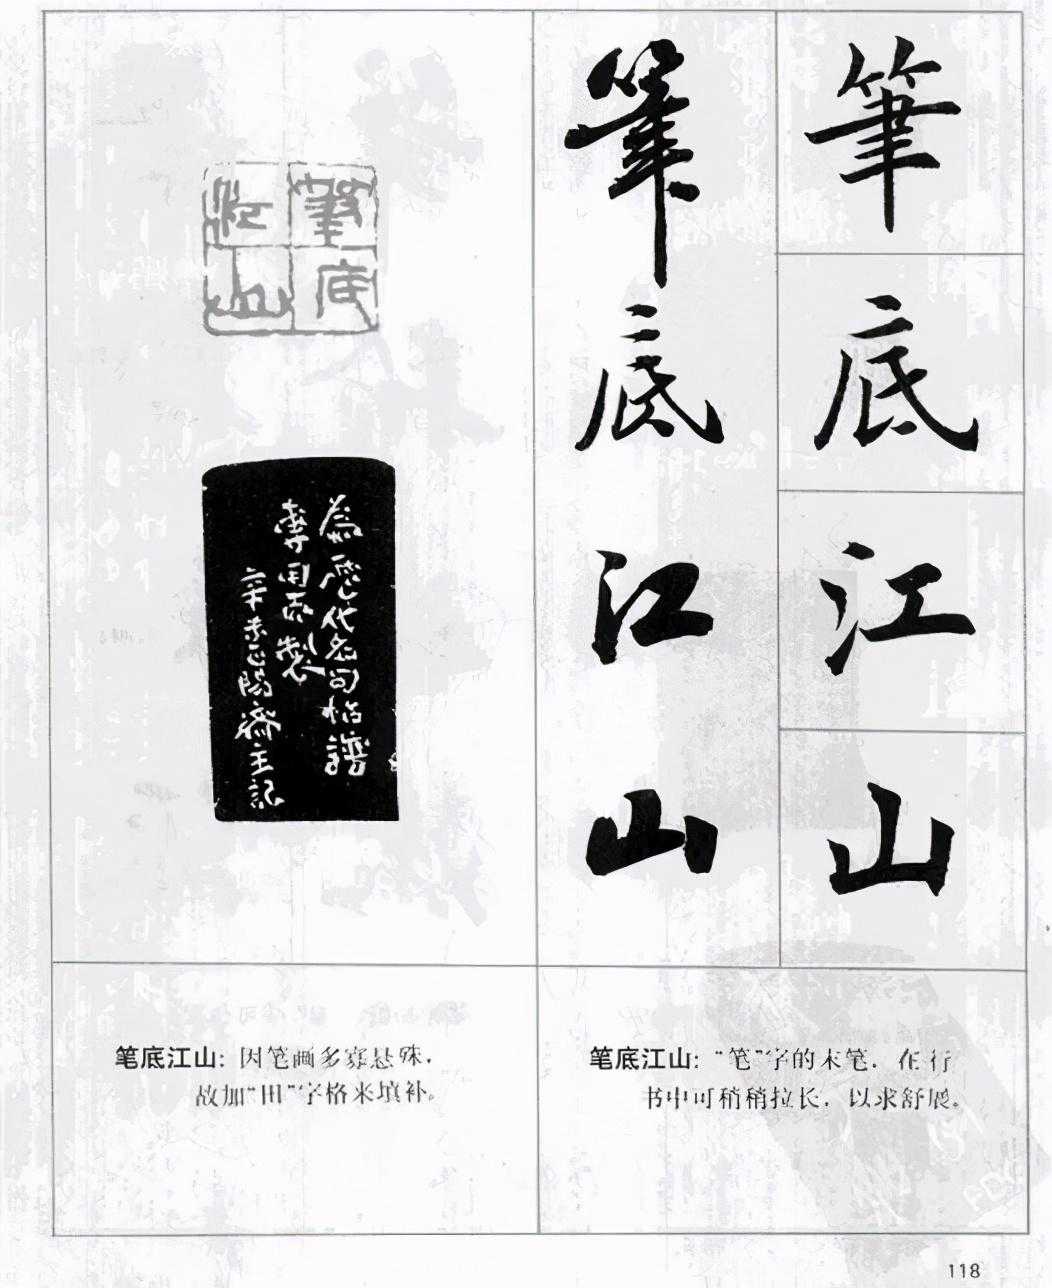 筆底江山
筆底江山
筆底
江山
為歷代名句印譜
專用而製
辛未正陽齋主記
笔底江山：因笔画多寡悬殊，
故加“田”字格来填补。
笔底江山：“笔”字的末笔，在行
书中可稍稍拉长，以求舒展。
118